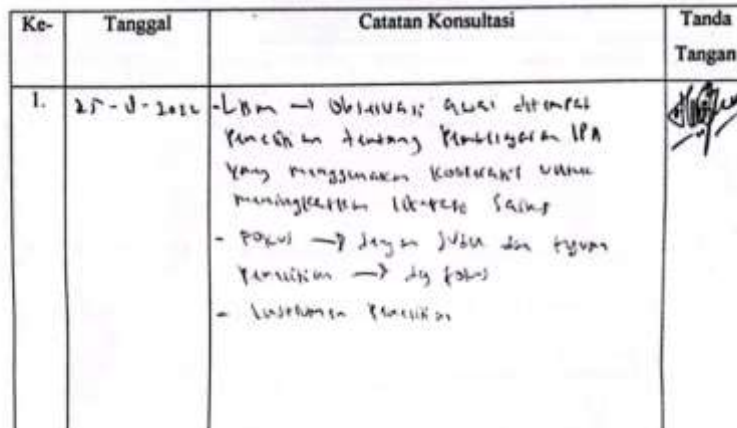 Ke- Tanggal Catatan Konsultasi Tanda Tangan
1. 25 - - 2022 - LBM → Observasi awal ditempat
Penelitian tentang Pembelajaran IPA
yang menggunakan untuk
meningkatkan literasi Sains
- Fokus → dengan judul dan tujuan
Penelitian → dg fokus
- Instrumen Penelitian